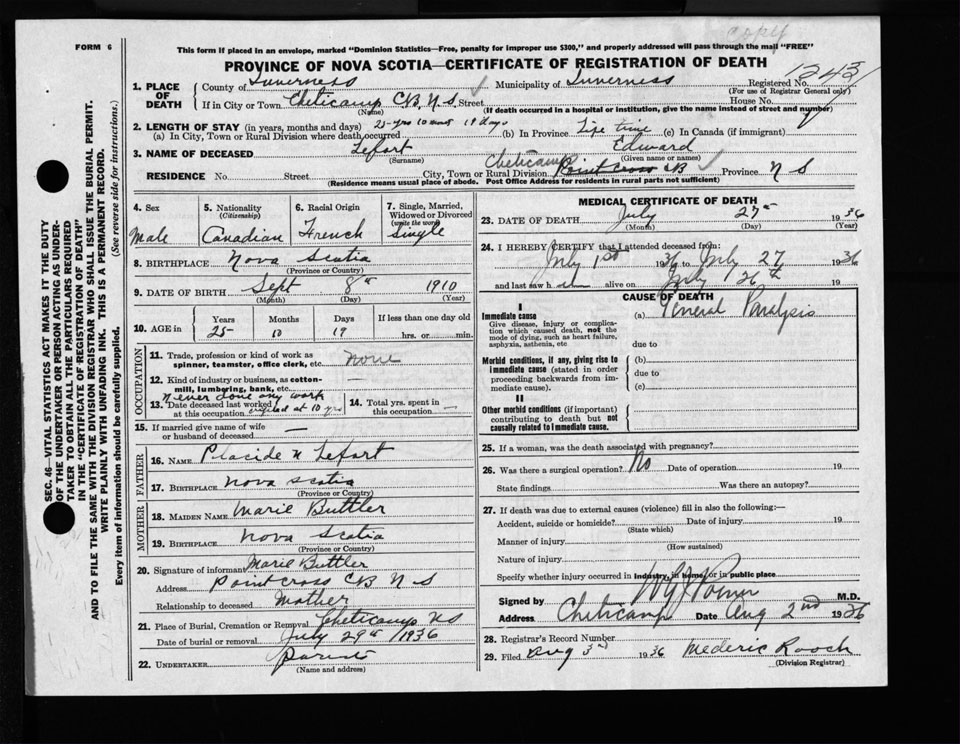 copy
FORM 6
This form if placed in an envelope, marked "Dominion Statistics—Free, penalty for improper use $300," and properly addressed will pass through the mail "FREE"
PROVINCE OF NOVA SCOTIA—CERTIFICATE OF REGISTRATION OF DEATH
1. PLACE OF DEATH
County of Inverness Municipality of Inverness Registered No. 1243
(For use of Registrar General only)
If in City or Town Cheticamp CB, N S. Street House No.
(Name) (If death occurred in a hospital or institution, give the name instead of street and number)
2. LENGTH OF STAY (in years, months and days) 25 yrs 10 mos 19 days
(a) In City, Town or Rural Division where death occurred (b) In Province Life time (c) In Canada (if immigrant)
3. NAME OF DECEASED Lefort Edward
(Surname) (Given name or names)
RESIDENCE No. Street City, Town or Rural Division Cheticamp Point Cross CB Province N S
(Residence means usual place of abode. Post Office Address for residents in rural parts not sufficient)
4. Sex Male
5. Nationality (Citizenship) Canadian
6. Racial Origin French
7. Single, Married, Widowed or Divorced (write the word) Single
8. BIRTHPLACE Nova Scotia
(Province or Country)
9. DATE OF BIRTH Sept 8th 1910
(Month) (Day) (Year)
10. AGE in Years Months Days If less than one day old
25 10 19 hrs. or min.
OCCUPATION
11. Trade, profession or kind of work as spinner, teamster, office clerk, etc. none
12. Kind of industry or business, as cotton-mill, lumbering, bank, etc. —
never done any work
13. Date deceased last worked at this occupation crippled at 10 yrs
14. Total yrs. spent in this occupation —
15. If married give name of wife or husband of deceased —
FATHER
16. NAME Placide N Lefort
17. BIRTHPLACE Nova Scotia
(Province or Country)
MOTHER
18. MAIDEN NAME Marie Buttler
19. BIRTHPLACE Nova Scotia
(Province or Country)
20. Signature of informant Marie Buttler
Address Point Cross CB N S
Relationship to deceased Mother
21. Place of Burial, Cremation or Removal Cheticamp NS
Date of burial or removal July 29th /1936
22. UNDERTAKER
(Name and address)
MEDICAL CERTIFICATE OF DEATH
23. DATE OF DEATH July 27th 1936
(Month) (Day) (Year)
24. I HEREBY CERTIFY that I attended deceased from:
July 1st 1936 to July 27 1936
and last saw h im alive on July 26th 19
CAUSE OF DEATH
I
Immediate cause
Give disease, injury or complication which caused death, not the mode of dying, such as heart failure, asphyxia, asthenia, etc
(a) General Paralysis
due to
Morbid conditions, if any, giving rise to immediate cause (stated in order proceeding backwards from immediate cause).
(b)
due to
(c)
II
Other morbid conditions (if important) contributing to death but not causally related to immediate cause.
25. If a woman, was the death associated with pregnancy?
26. Was there a surgical operation? No Date of operation 19
State findings Was there an autopsy?
27. If death was due to external causes (violence) fill in also the following:—
Accident, suicide or homicide? Date of injury 19
(State which)
Manner of injury
(How sustained)
Nature of injury
Specify whether injury occurred in industry, in home, or in public place
Signed by M.D.
Address Cheticamp Date Aug 2nd 1936
28. Registrar's Record Number
29. Filed Aug 3rd 1936 Mederic Roach
(Division Registrar)
SEC. 46—VITAL STATISTICS ACT MAKES IT THE DUTY
OF THE UNDERTAKER OR PERSON ACTING AS UNDER-
TAKER TO OBTAIN ALL THE PARTICULARS REQUIRED
IN THE "CERTIFICATE OF REGISTRATION OF DEATH"
AND TO FILE THE SAME WITH THE DIVISION REGISTRAR WHO SHALL ISSUE THE BURIAL PERMIT.
WRITE PLAINLY WITH UNFADING INK. THIS IS A PERMANENT RECORD.
Every item of information should be carefully supplied. (See reverse side for instructions.)